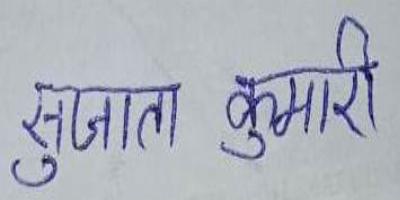 सुजाता कुमारी